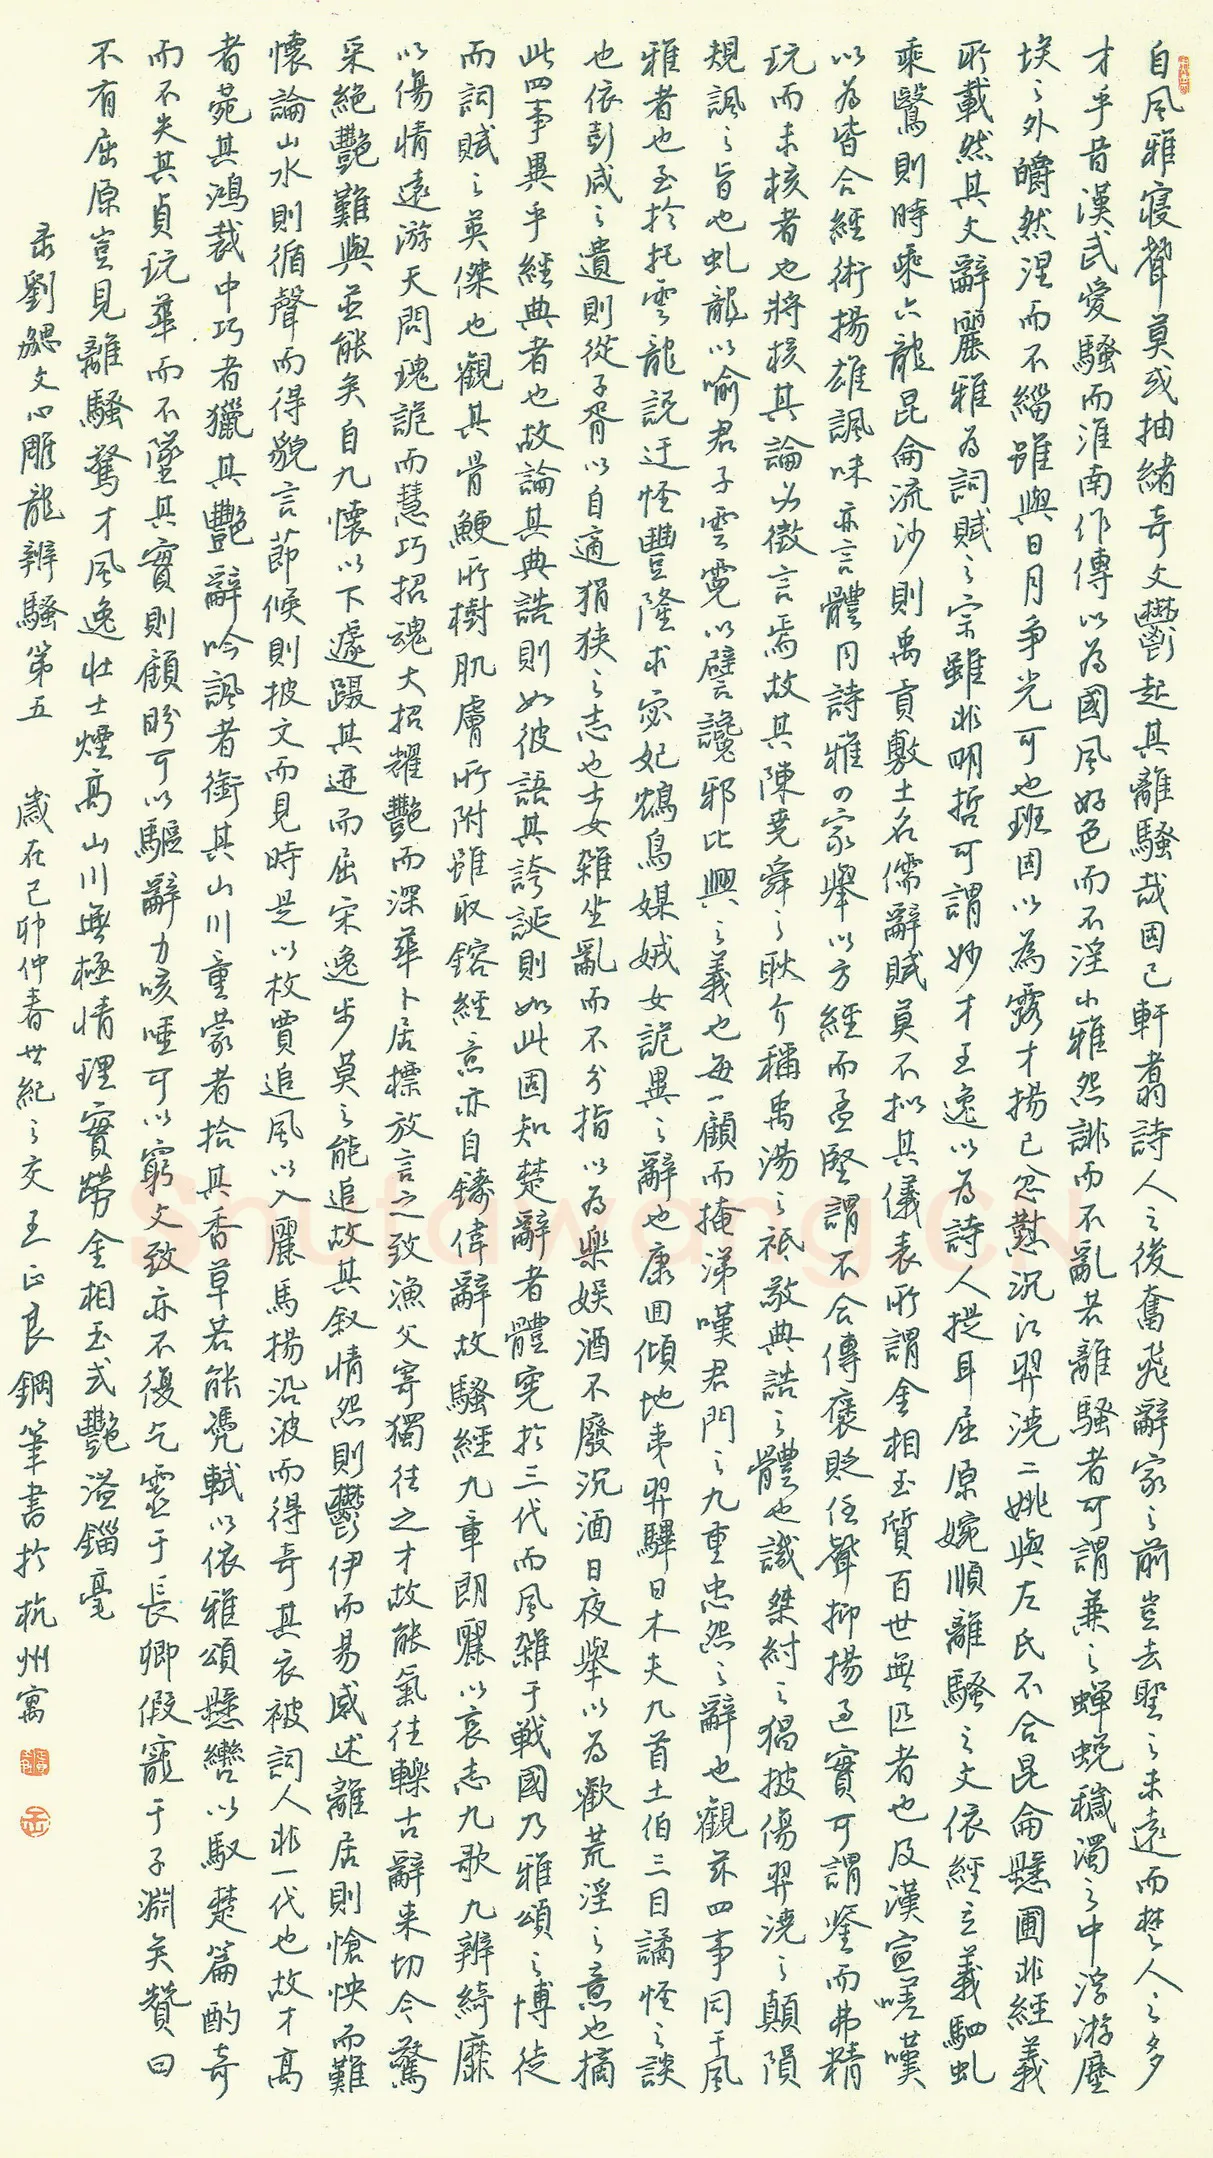 自風雅寢聲莫或抽緒奇文鬱起其離騷哉固已軒翥詩人之後奮飛辭家之前豈去聖之未遠而楚人之多
才乎昔漢武愛騷而淮南作傳以為國風好色而不淫小雅怨誹而不亂若離騷者可謂兼之蟬蛻穢濁之中浮游塵
埃之外皭然涅而不緇雖與日月爭光可也班固以為露才揚己忿懟沉江羿澆二姚與左氏不合昆侖懸圃非經義
所載然其文辭麗雅為詞賦之宗雖非明哲可謂妙才王逸以為詩人提耳屈原婉順離騷之文依經立義駟虬
乘鷖則時乘六龍昆侖流沙則禹貢敷土名儒辭賦莫不擬其儀表所謂金相玉質百世無匹者也及漢宣嗟嘆
以為皆合經術揚雄諷味亦言體同詩雅四家舉以方經而孟堅謂不合傳褒貶任聲抑揚過實可謂鑒而弗精
玩而未核者也將核其論必徵言焉故其陳堯舜之耿介稱禹湯之祗敬典誥之體也譏桀紂之猖披傷羿澆之顛隕
規諷之旨也虬龍以喻君子雲霓以譬讒邪比興之義也每一顧而掩涕嘆君門之九重忠怨之辭也觀茲四事同于風
雅者也至於托雲龍說迂怪豐隆求宓妃鴆鳥媒娀女詭異之辭也康回傾地夷羿彃日木夫九首土伯三目譎怪之談
也依彭咸之遺則從子胥以自適狷狹之志也士女雜坐亂而不分指以為樂娛酒不廢沉湎日夜舉以為歡荒淫之意也摘
此四事異乎經典者也故論其典誥則如彼語其誇誕則如此固知楚辭者體憲於三代而風雜于戰國乃雅頌之博徒
而詞賦之英傑也觀其骨鯁所樹肌膚所附雖取鎔經意亦自鑄偉辭故騷經九章朗麗以哀志九歌九辨綺靡
以傷情遠游天問瑰詭而慧巧招魂大招耀艷而深華卜居標放言之致漁父寄獨往之才故能氣往轢古辭來切今驚
采絕艷難與並能矣自九懷以下遽躡其迹而屈宋逸步莫之能追故其叙情怨則鬱伊而易感述離居則愴怏而難
懷論山水則循聲而得貌言節候則披文而見時是以枚賈追風以入麗馬揚沿波而得奇其衣被詞人非一代也故才高
者菀其鴻裁中巧者獵其艷辭吟諷者銜其山川童蒙者拾其香草若能憑軾以依雅頌懸轡以馭楚篇酌奇
而不失其貞玩華而不墜其實則顧盼可以驅辭力咳唾可以窮文致亦不復乞靈于長卿假寵于子淵矣贊曰
不有屈原豈見離騷驚才風逸壯士煙高山川無極情理實勞金相玉式艷溢錙毫
录劉勰文心雕龍辨騷第五 歲在己卯仲春世紀之交王正良鋼筆書於杭州寓
Shufawang.CN